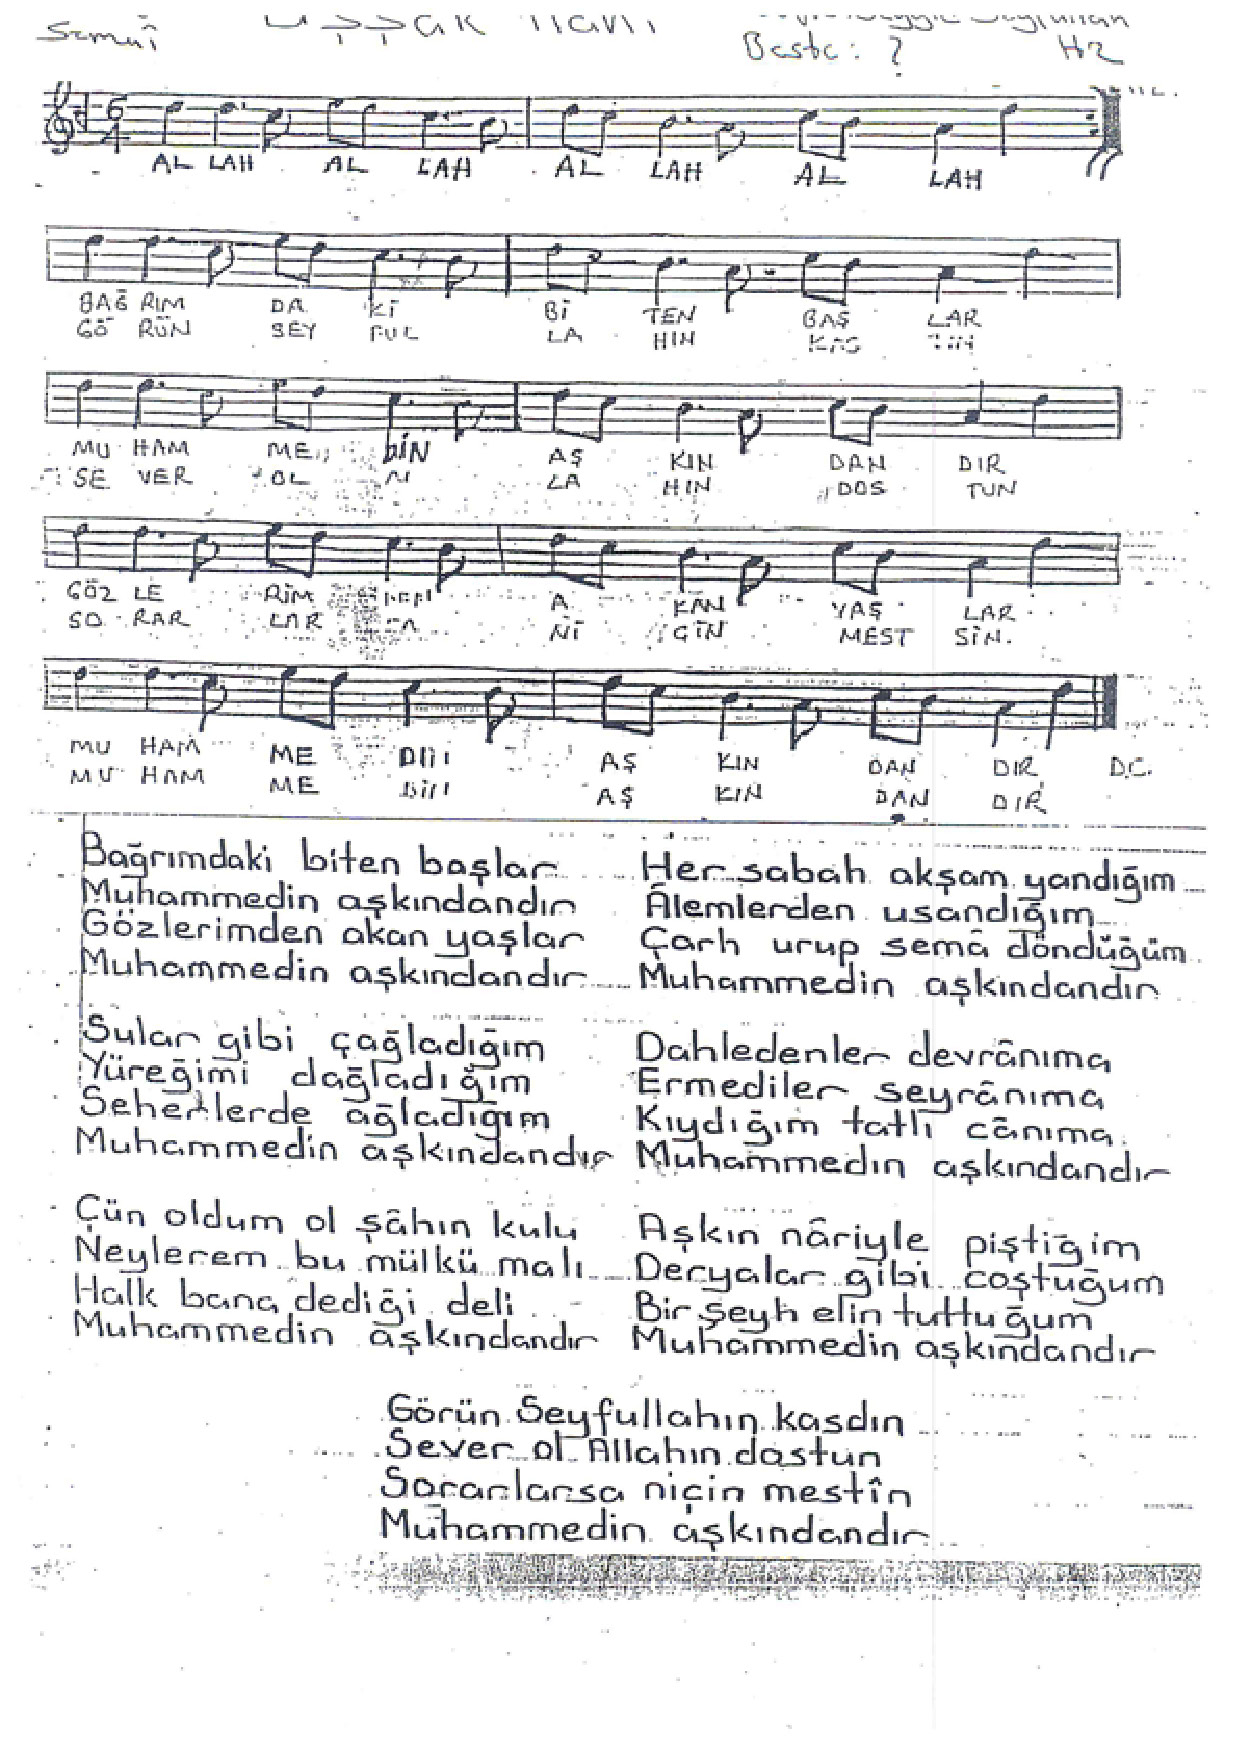 Semaî
Uşşak İlahi
Beste: ?
Hz
6
4
AL LAH AL LAH AL LAH AL LAH
BAĞ RIM DA Kİ Bİ TEN BAŞ LAR
GÖ RÜN SEY FUL LA HIN
MU HAM ME DİN AŞ KIN DAN DIR
SE VER OL LA HIN DOS TUN
GÖZ LE RİM A KAN YAŞ LAR
SO RAR LAR SA Nİ ÇİN MEST SİN.
MU HAM ME DİN AŞ KIN DAN DIR D.C.
MU HAM ME DİN AŞ KIN DAN DIR
Bağrımdaki biten başlar
Muhammedin aşkındandır
Gözlerimden akan yaşlar
Muhammedin aşkındandır
Sular gibi çağladığım
Yüreğimi dağladığım
Seherlerde ağladığım
Muhammedin aşkındandır
Çün oldum ol şâhın kulu
Neylerem bu mülkü malı
Halk bana dediği deli
Muhammedin aşkındandır
Her sabah akşam yandığım
Âlemlerden usandığım
Çarh urup semâ döndüğüm
Muhammedin aşkındandır
Dahledenler devrânıma
Ermediler seyrânıma
Kıydığım tatlı cânıma
Muhammedin aşkındandır
Aşkın nâriyle piştiğim
Deryalar gibi coştuğum
Bir şeyh elin tuttuğum
Muhammedin aşkındandır
Görün Seyfullahın kasdın
Sever ol Allahın dostun
Sorarlarsa niçin mestîn
Muhammedin aşkındandır